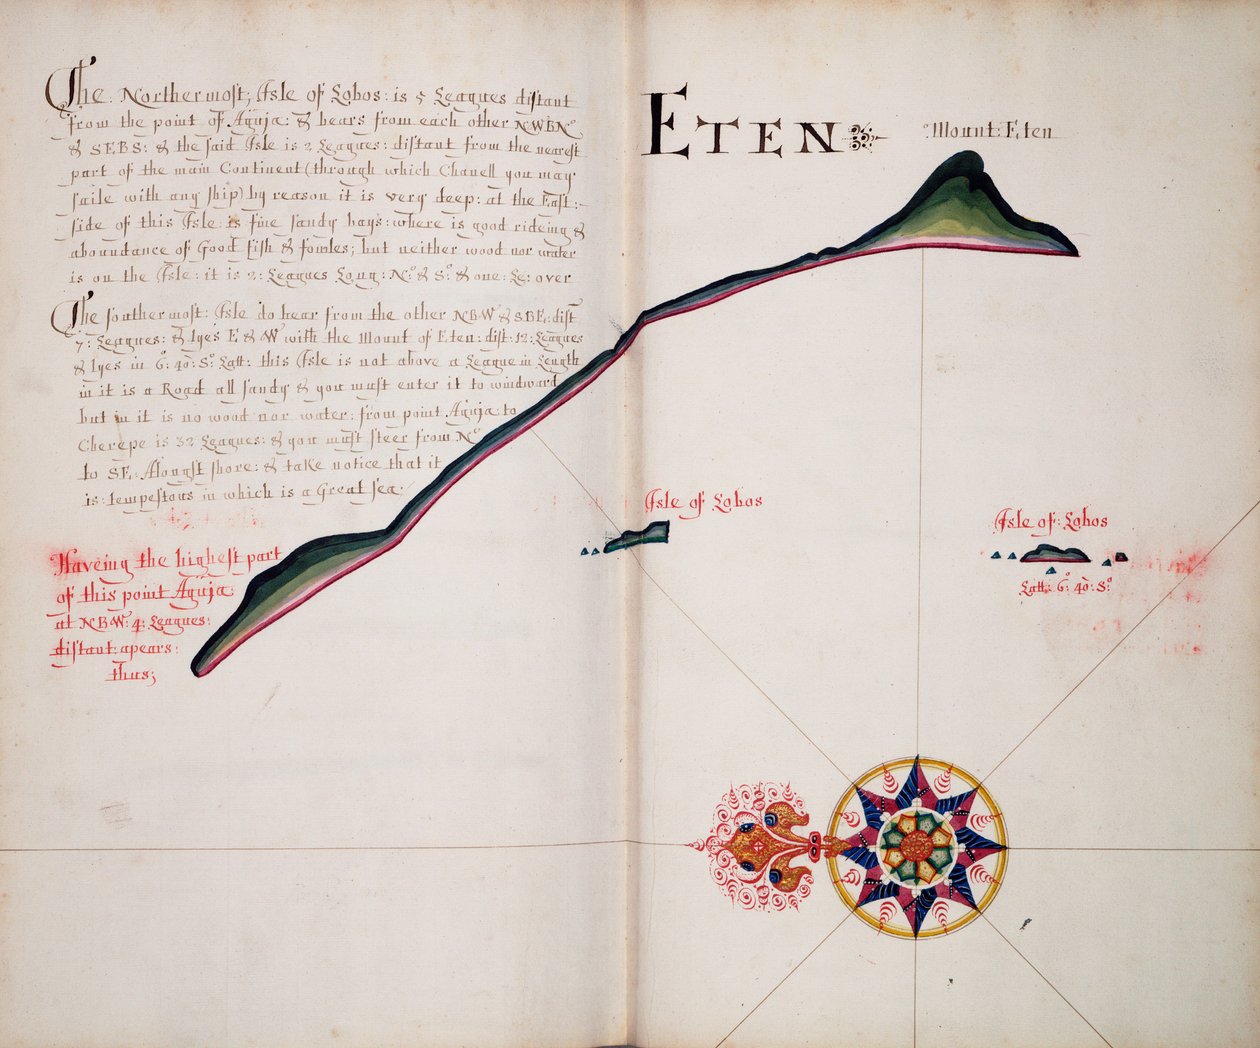 The Northermost; Isle of Lobos: is 5 Leagues distant
from the point of Aguja: & bears from each other NWBNº
& SEBS: & the said Isle is 2 Leagues: distant from the nearest
part of the main Continent (through which Chanell you may
saile with any ship) by reason it is very deep: at the East:
side of this Isle is fine sandy bays: where is good rideing &
aboundance of Good fish & fowles; but neither wood nor water
is on the Isle: it is 2: Leagues Long: Nº & Sº & one: Le: over
The southermost: Isle do bear from the other NBW & SBE: dist
7: Leagues: & lyes E & W with the Mount of Eten: dist: 12: Leagues
& lyes in 6º: 40: Sº Latt: this Isle is not above a League in Length
in it is a Road all sandy & you must enter it to windward
but in it is no wood nor water: from point Aguja to
Cherepe is 32 Leagues: & you must steer from Nº
to SE: Alongst shore: & take notice that it
is: tempestous in which is a Great sea:
Haveing the highest part
of this point Aguja
at NBW: 4: Leagues:
distant: apears:
thus;
ETEN
Mount: Eten
Isle of Lobos
Isle of: Lobos
Latt: 6º: 40: Sº